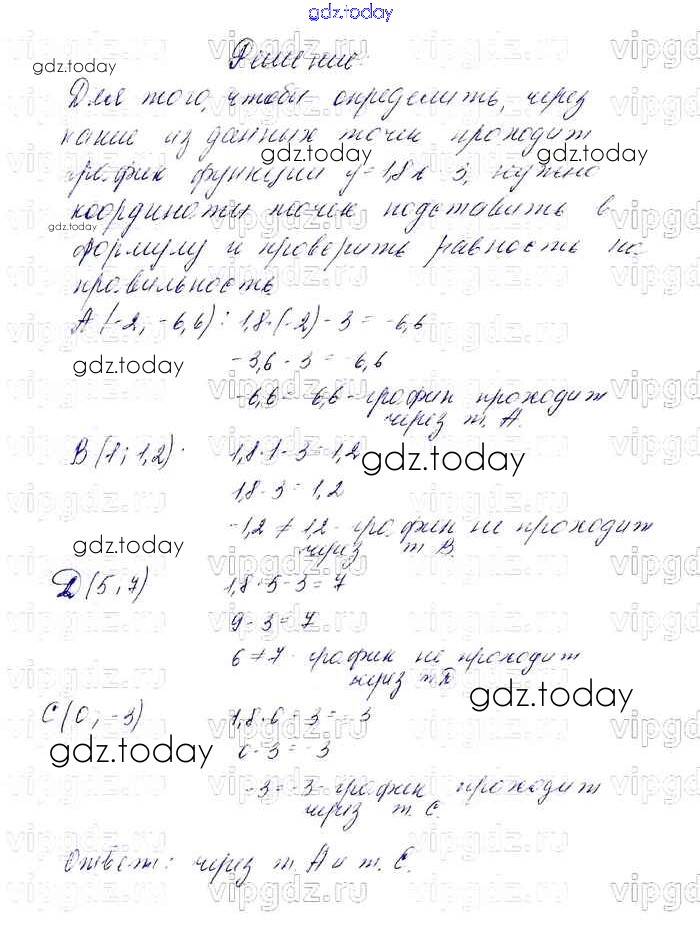 gdz.today
Решение:
Для того, чтобы определить, через
какие из данных точек проходит
график функции y = 1,8x - 3, нужно
координаты точек подставить в
формулу и проверить равность на
правильность.
A (-2; -6,6) : 1,8·(-2) - 3 = -6,6
-3,6 - 3 = -6,6
-6,6 = -6,6 - график проходит
через т. A.
B (1; 1,2) : 1,8·1 - 3 = 1,2
1,8 - 3 = 1,2
-1,2 ≠ 1,2 - график не проходит
через т. B.
D (5; 7) 1,8·5 - 3 = 7
9 - 3 = 7
6 ≠ 7 - график не проходит
через т. D
C (0; -3) 1,8·0 - 3 = -3
0 - 3 = -3
-3 = -3 - график проходит
через т. C.
Ответ: через т. A и т. C.
gdz.today
gdz.today
gdz.today
gdz.today
gdz.today
gdz.today
gdz.today
gdz.today
vipgdz.ru